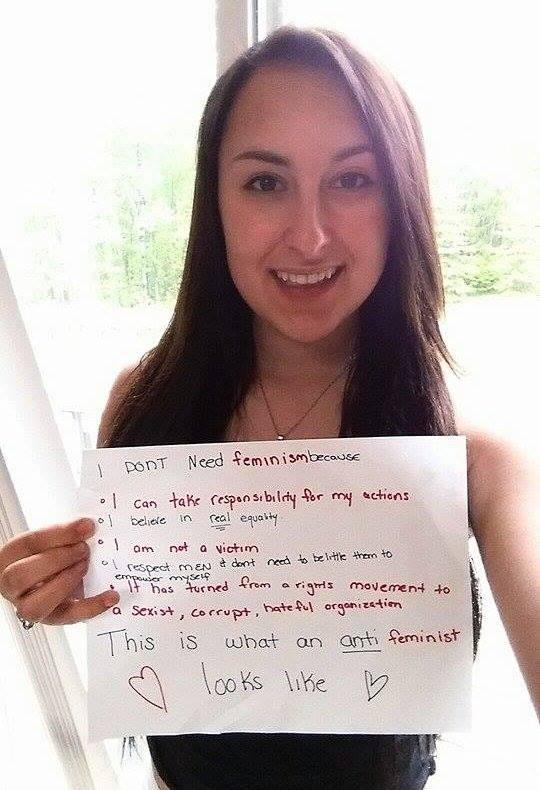 I DONT Need feminism because
• I can take responsibility for my actions
• I believe in real equality.
• I am not a victim
• I respect MEN & dont need to belittle them to
empower myself
• It has turned from a rights movement to
a sexist, corrupt, hateful organization
This is what an anti feminist
looks like